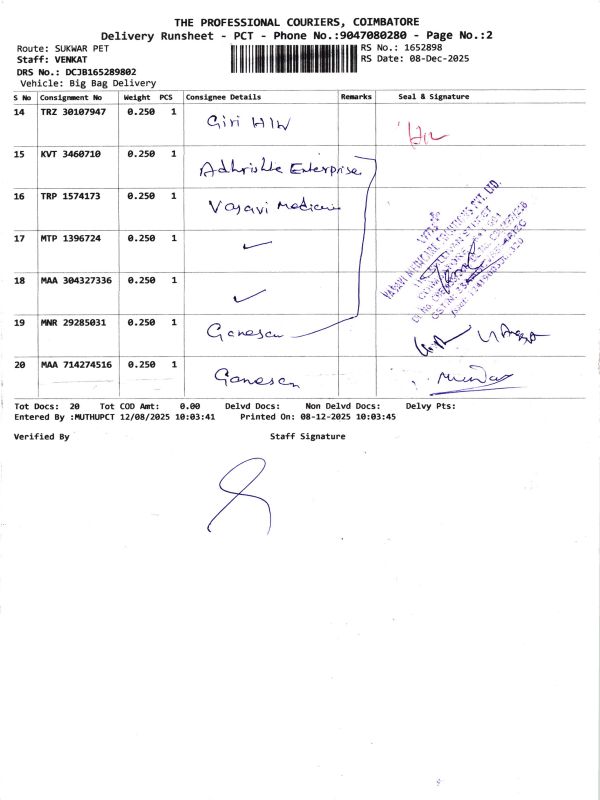 THE PROFESSIONAL COURIERS, COIMBATORE
Delivery Runsheet - PCT - Phone No.:9047080280 - Page No.:2
Route: SUKWAR PET
RS No.: 1652898
Staff: VENKAT
RS Date: 08-Dec-2025
DRS No.: DCJB165289802
Vehicle: Big Bag Delivery
S No Consignment No Weight PCS Consignee Details Remarks Seal & Signature
14 TRZ 30107947 0.250 1 Giri H/W
15 KVT 3460710 0.250 1 Adhrishta Enterprise
16 TRP 1574173 0.250 1 Vasavi Medicare
17 MTP 1396724 0.250 1 ✓
18 MAA 304327336 0.250 1 ✓
19 MNR 29285031 0.250 1 Ganesan
20 MAA 714274516 0.250 1 Ganesan
Tot Docs: 20 Tot COD Amt: 0.00 Delvd Docs: Non Delvd Docs: Delvy Pts:
Entered By :MUTHUPCT 12/08/2025 10:03:41 Printed On: 08-12-2025 10:03:45
Verified By Staff Signature